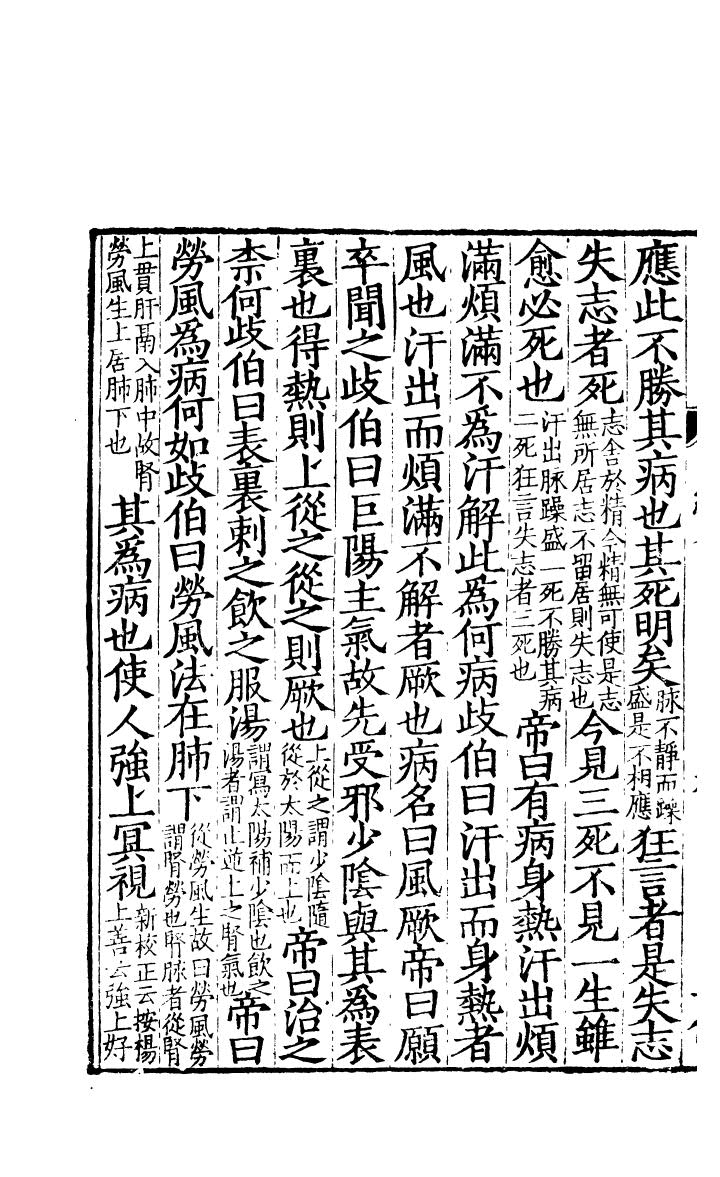 應此不勝其病也其死明矣脉不靜而躁盛是不相應狂言者是失志
失志者死志舍於精今精無可使是志無所居志不留居則失志也今見三死不見一生雖
愈必死也汗出脉躁盛一死不勝其病二死狂言失志者三死也帝曰有病身熱汗出煩
滿煩滿不爲汗解此爲何病歧伯曰汗出而身熱者
風也汗出而煩滿不解者厥也病名曰風厥帝曰願
卒聞之歧伯曰巨陽主氣故先受邪少陰與其爲表
裏也得熱則上從之從之則厥也上從之謂少陰隨從於太陽而上也帝曰治之
柰何歧伯曰表裏刺之飲之服湯謂寫太陽補少陰也飲之湯者謂止逆上之腎氣也帝曰
勞風爲病何如歧伯曰勞風法在肺下從勞風生故曰勞風勞謂腎勞也腎脉者從腎
上貫肝鬲入肺中故腎勞風生上居肺下也其爲病也使人強上冥視新校正云按楊上善云強上好